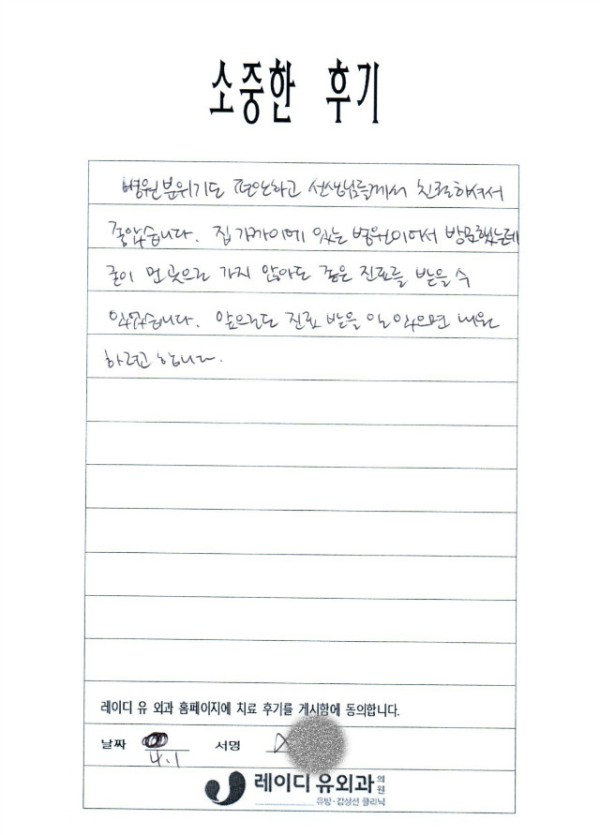 소중한 후기
병원분위기도 편안하고 선생님들께서 친절하셔서
좋았습니다. 집 가까이에 있는 병원이어서 방문했는데
굳이 먼 곳으로 가지 않아도 좋은 진료를 받을 수
있었습니다. 앞으로도 진료 받을 일 있으면 내원
하려고 합니다.
레이디 유 외과 홈페이지에 치료 후기를 게시함에 동의합니다.
날짜 4.1 서명
레이디 유외과 의원
유방·갑상선 클리닉